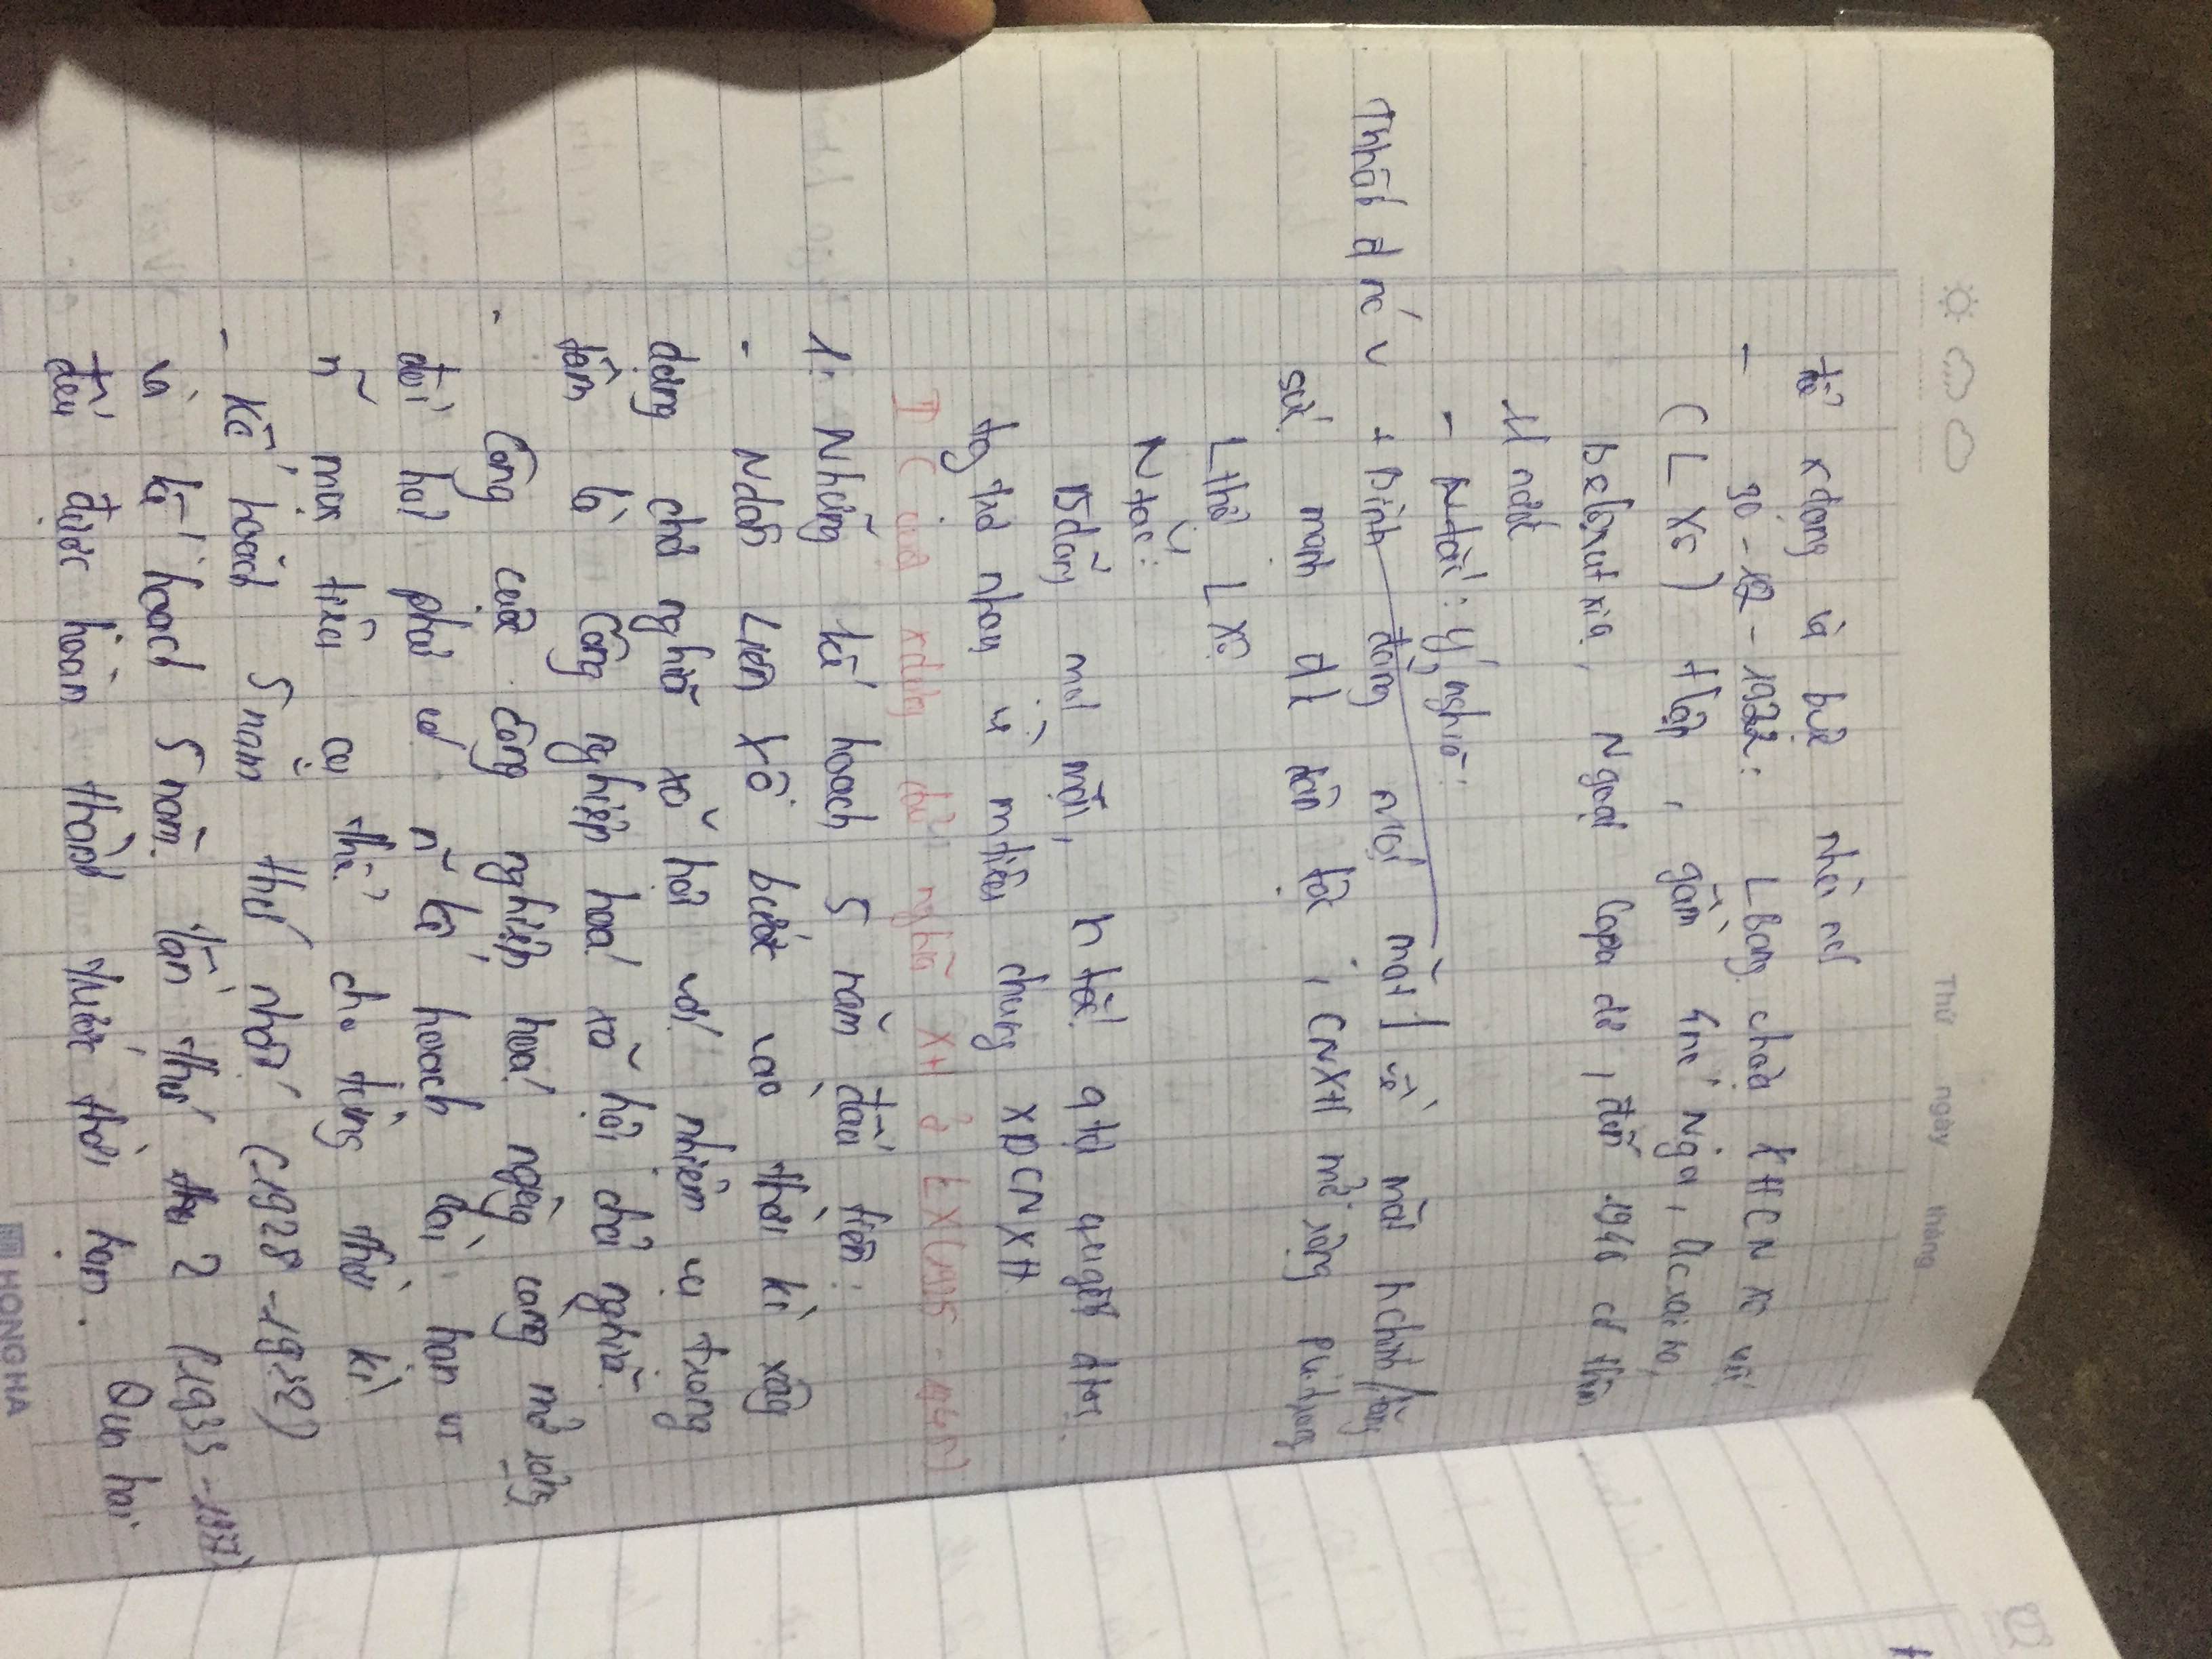 Thứ ngày tháng
để xdựng và bvệ nhà nc
- 30-12-1922: LBang chxhd KHCN Xv
(LXv) tlập, gồm 4nc Ngα, Ucraina,
Belôrutxia, Ngoại Capcadơ, đến 1940 có thêm
11 nước
- Ntắc: Ý nghĩa:
Thhất đnc v + Bình đẳng mọi mặt về mặt hchính /tăng
sức mạnh dt dân tộc, CNXH mở rộng
Lthổ LXô
Ntắc:
Bđẳng mọi mặt, qtự quyết dtộc
tgtrợ nhau vì mtiêu chung XDCNXH
II C xdựng chủ nghĩa XH ở LX (1925-1941)
1. Những kế hoạch 5 năm đầu tiên:
- Ndân Liên Xô bước vào thời kì xây
dựng chủ nghĩa xã hội với nhiệm vụ trọng
tâm là Công nghiệp hoá xã hội chủ nghĩa.
- Công cuộc công nghiệp hoá ngày càng mở rộng
đòi hỏi phải có n~ kế hoạch dài hạn vs
n~ mục tiêu cụ thể cho từng thời kì.
- Kế hoạch 5 năm thứ nhất (1928-1932)
và kế hoạch 5 năm lần thứ 2 (1933-1937)
đều được hoàn thành trước thời hạn. Qua hai
HONG HA